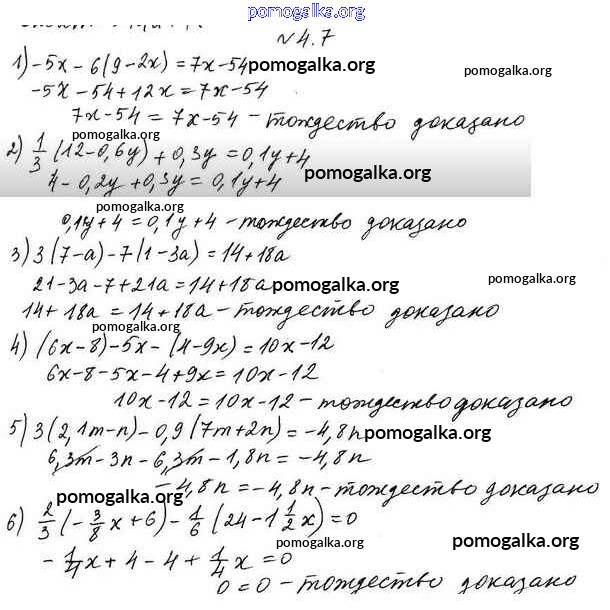 pomogalka.org
№4.7
1) -5x - 6(9-2x) = 7x-54 pomogalka.org
pomogalka.org
-5x - 54 + 12x = 7x - 54
7x - 54 = 7x - 54 - тождество доказано
pomogalka.org
2) 1/3 (12-0,6y) + 0,3y = 0,1y+4
4 - 0,2y + 0,3y = 0,1y + 4 pomogalka.org
pomogalka.org
0,1y + 4 = 0,1y + 4 - тождество доказано
3) 3(7-a) - 7(1-3a) = 14+18a
21-3a-7+21a = 14+18a pomogalka.org pomogalka.org
14 + 18a = 14 + 18a - тождество доказано
pomogalka.org
4) (6x-8) - 5x - (4-9x) = 10x-12
6x-8-5x-4+9x = 10x-12
10x-12 = 10x-12 - тождество доказано
5) 3(2,1m-n) - 0,9(7m+2n) = -4,8n pomogalka.org
6,3m - 3n - 6,3m - 1,8n = -4,8n
-4,8n = -4,8n - тождество доказано
pomogalka.org
6) 2/3 (-3/8 x + 6) - 1/6 (24 - 1 1/2 x) = 0
pomogalka.org pomogalka.org
-1/4 x + 4 - 4 + 1/4 x = 0
0 = 0 - тождество доказано